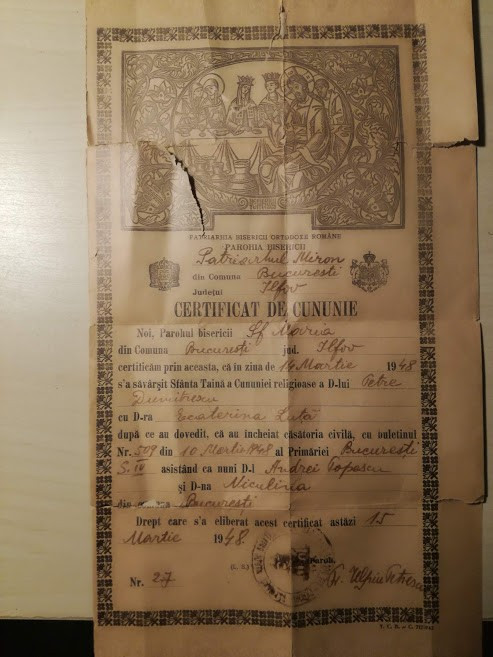 PATRIARHIA BISERICII ORTODOXE ROMÂNE
PAROHIA BISERICII
Patriarhul Miron
din Comuna Bucureşti
Judeţul Ilfov
CERTIFICAT DE CUNUNIE
Noi, Parohul bisericii Sf Maria
din Comuna Bucureşti jud. Ilfov
certificăm prin aceasta, că în ziua de 14 Martie 1948
s'a săvârşit Sfânta Taină a Cununiei religioase a D-lui Petre
Dumitrescu
cu D-ra Ecaterina Luţă
după ce au dovedit, că au încheiat căsătoria civilă, cu buletinul
Nr. 509 din 10 Martie 1948 al Primăriei Bucureşti
S. IV asistând ca nuni D-l Andrei Popescu
şi D-na Niculina
din comuna Bucureşti
Drept care s'a eliberat acest certificat astăzi 15
Martie 1948.
(L. S.) Paroh,
Nr. 27